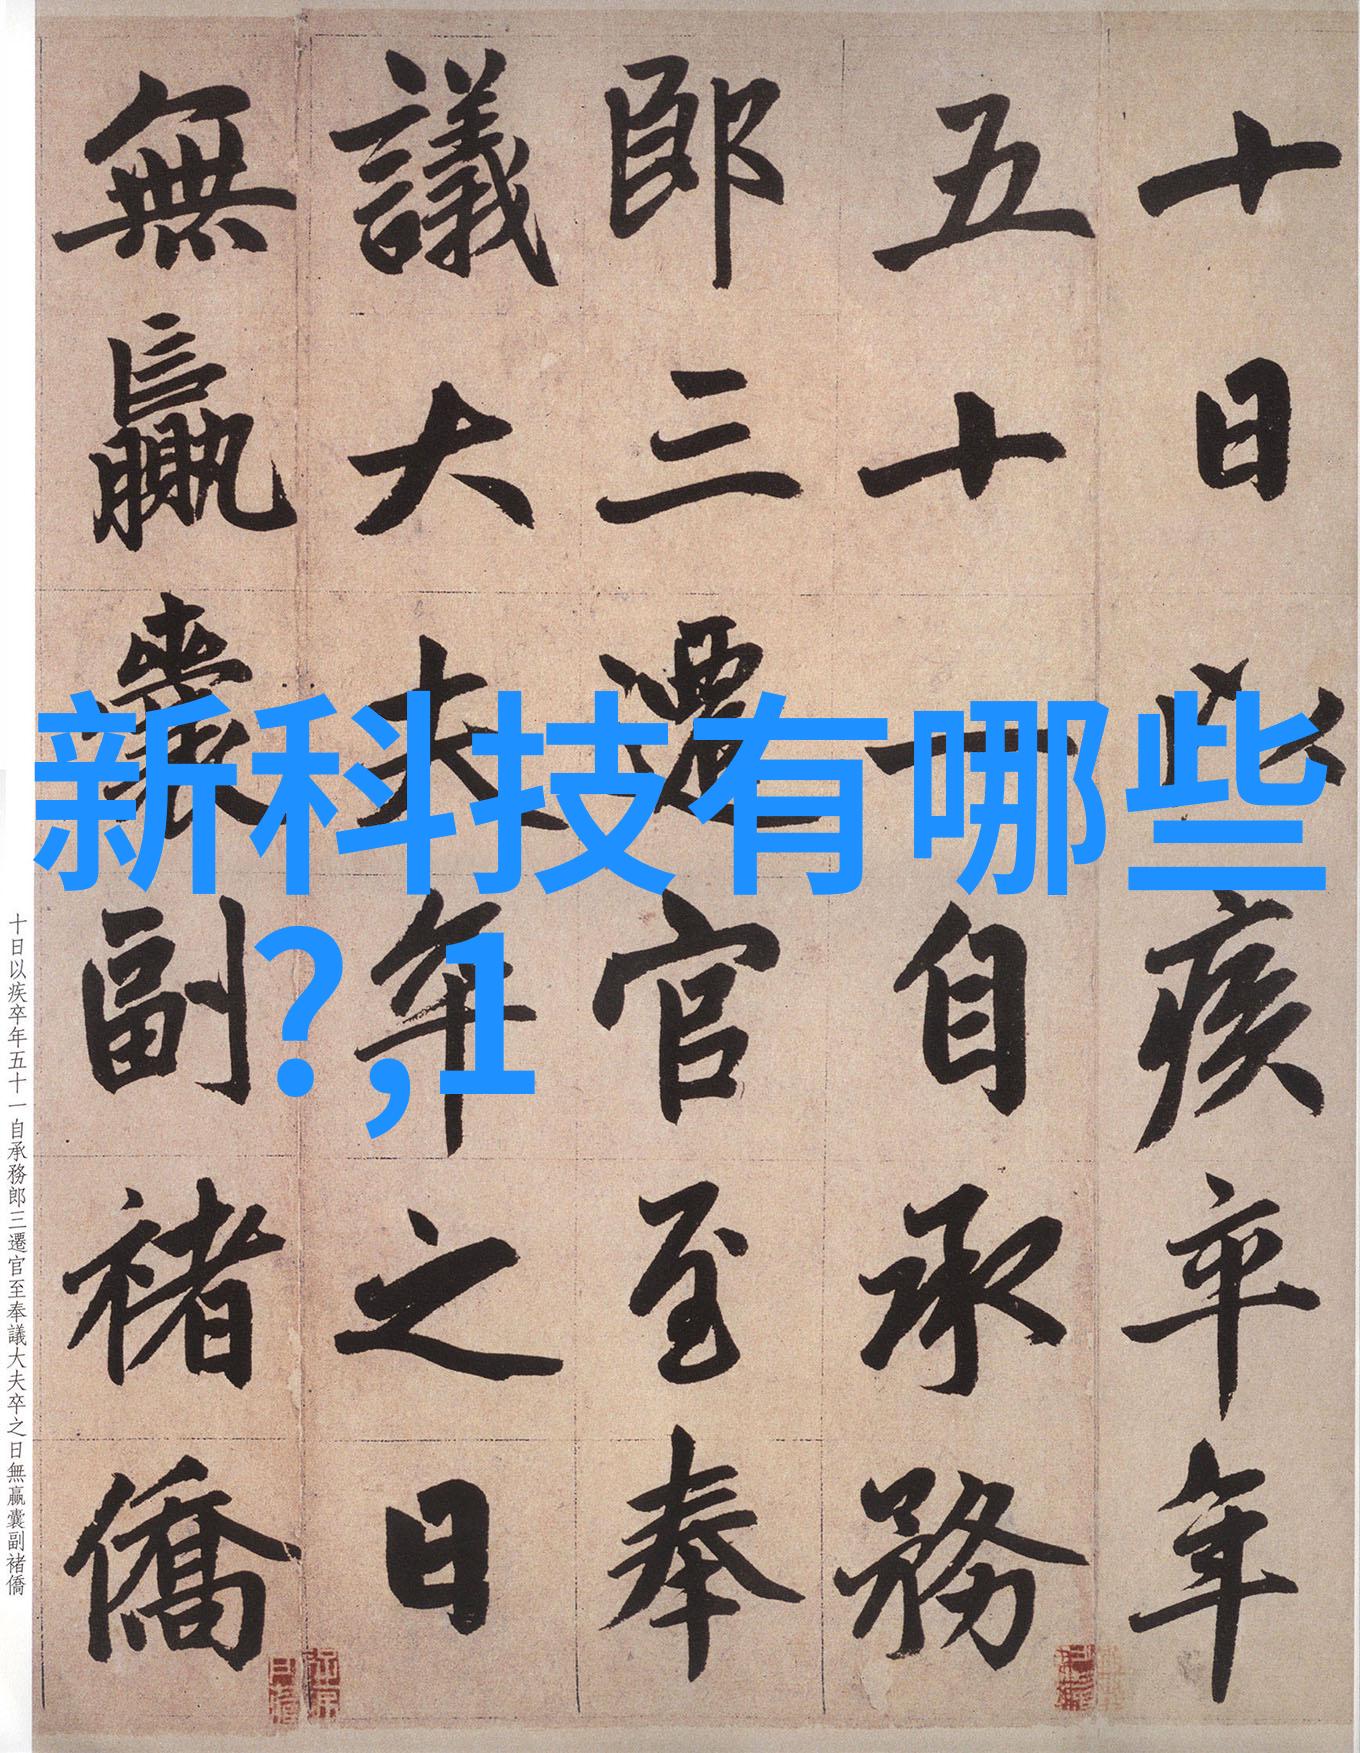 十日以疾卒年
五十一自承務
郎三遷官至奉
議大夫卒之日
無贏囊副褚僑
十日以疾卒年五十一自承務郎三遷官至奉議大夫卒之日無贏囊副褚僑
新科技有哪些
?,1